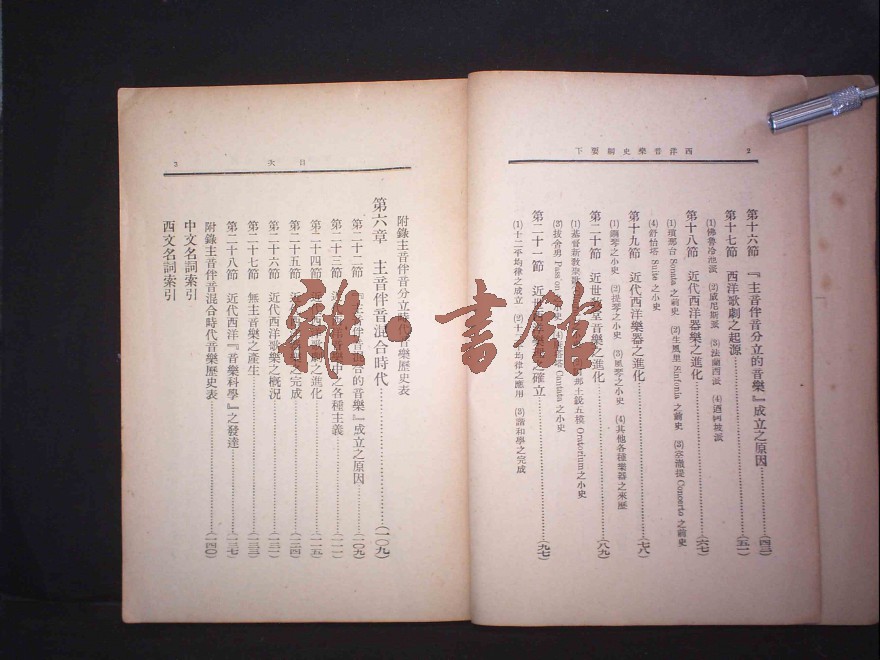 西洋音樂史綱要下
2
第十六節 『主音伴音分立的音樂』成立之原因(四三)
第十七節 西洋歌劇之起源(五一)
(1)佛魯冷池派 (2)威尼斯派 (3)法蘭西派 (4)
第十八節 近代西洋器樂之進化(六七)
(1)瑣那台 Sonata 之前史 (2)生風里 Sinfonia 之前史 (3) Concerto 之前史
(4)舒怡塔 Suite 之小史
第十九節 近代西洋樂器之進化(七八)
(1)鋼琴之小史 (2)提琴之小史 (3)風琴之小史 (4)其他各種樂器之來歷
第二十節 近世 音樂之進化(八九)
(1)基督新教 那土銳五模 Oratorium 之小史
(3)拔含男 Passion Cantata 之小史
第二十一節 近世西 之確立(九七)
(1)十二平均律之成立 (2)十二平均律之應用 (3)諧和學之完成
目次
3
附錄主音伴音分立時代音樂歷史表
第六章 主音伴音混合時代(一〇九)
第二十二節 『主音伴音混合的音樂』成立之原因(一〇九)
第二十三節 近 樂中之各種主義(一一一)
第二十四節 歌劇之進化(一一五)
第二十五節 近代 之完成(一二四)
第二十六節 近代西洋歌樂之概況(一三一)
第二十七節 無主音樂之產生(一三三)
第二十八節 近代西洋『音樂科學』之發達(一三七)
附錄主音伴音混合時代音樂歷史表(一四〇)
中文名詞索引
西文名詞索引
雜·書館